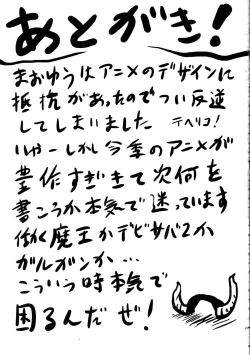 あとがき!
まおゆうはアニメのデザインに
抵抗があったのでつい反逆
してしまいました テヘペロ!
いやーしかし今季のアニメが
豊作すぎきて次何を
書こうか本気で迷っています
働く魔王かデビサバ2か
ガルガンか…
こういう時本気で
困るんだぜ!